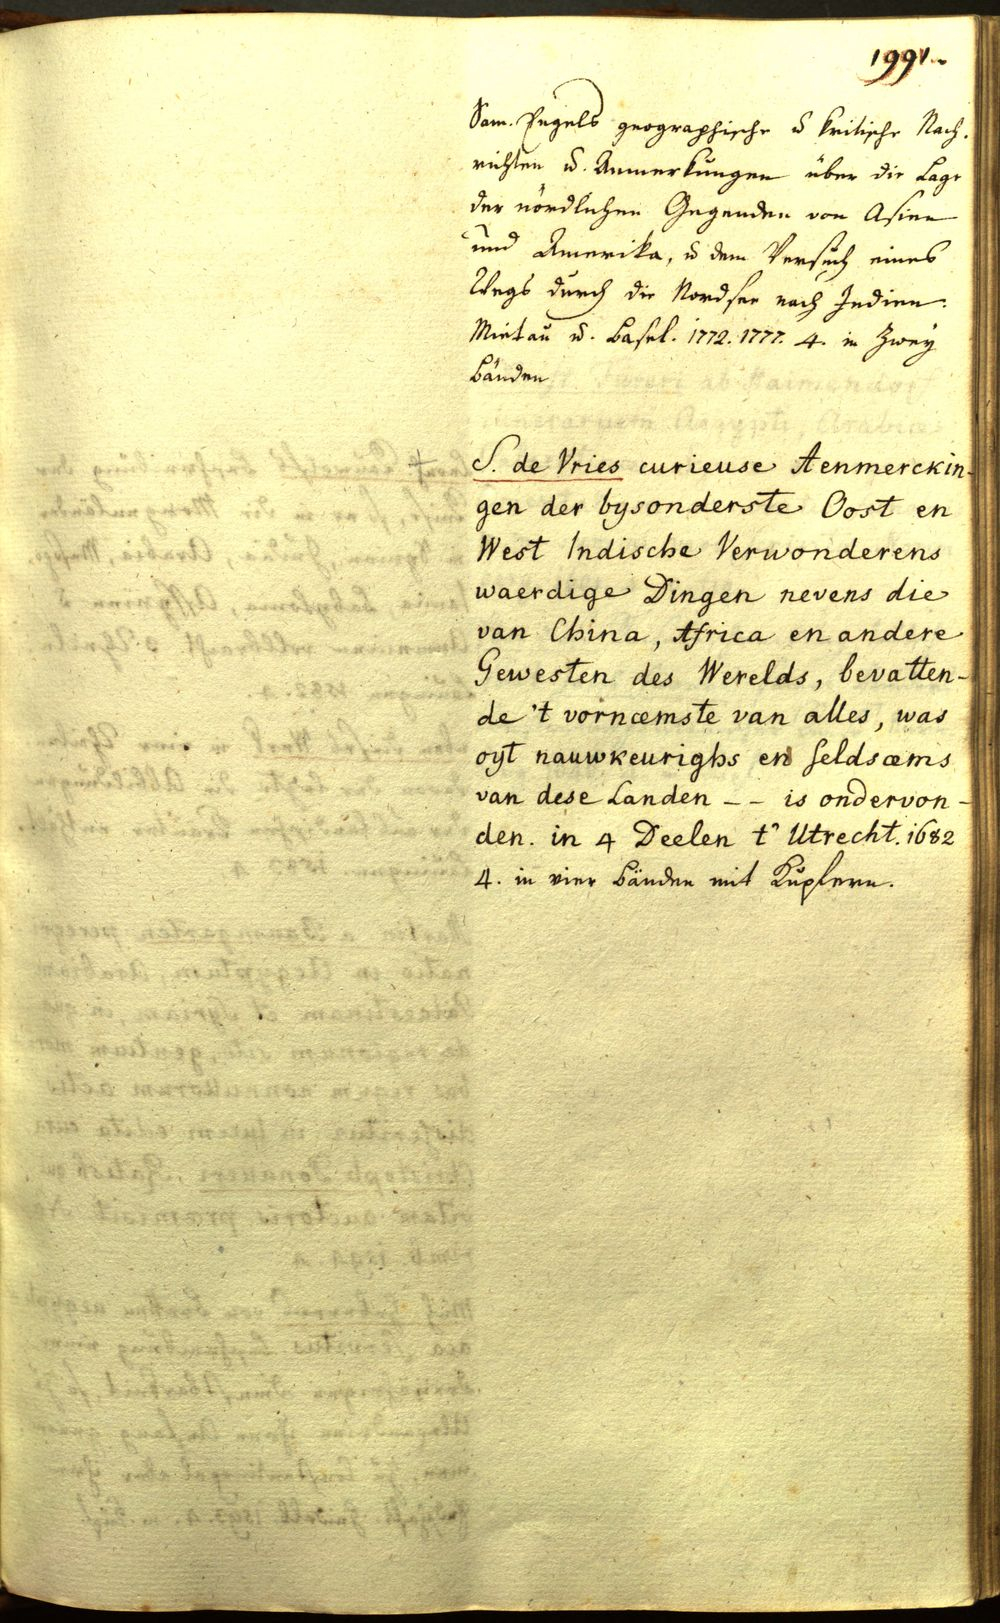 1991.
Sam. Engels geographische u kritische Nach-
richten u. Anmerkungen über die Lage
der nördlichen Gegenden von Asien
und Amerika, u dem Versuch eines
Wegs durch die Nordsee nach Indien.
Mietau u. Basel. 1772. 1777. 4. in Zwey
Bänden
+ S. de Vries curieuse Aenmerckin-
gen der bysonderste Oost en
West Indische Verwonderens
waerdige Dingen nevens die
van China, Africa en andere
Gewesten des Werelds, bevatten-
de 't vornœmste van alles, was
oyt nauwkeurighs en seldsæms
van dese Landen -- is ondervon-
den. in 4 Deelen t' Utrecht. 1682
4. in vier Bänden mit Kupfern.